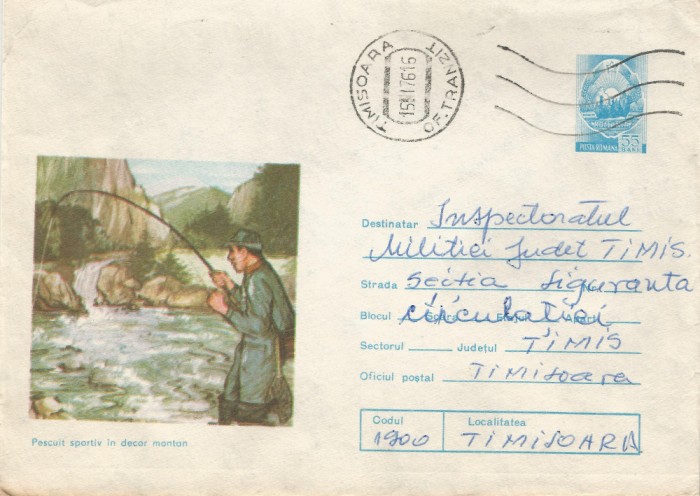 TIMISOARA
OF. TRANZIT
POSTA ROMANA 55 BANI
Destinatar Inspectoratul
Militiei Judet TIMIS.
Strada Sectia Siguranta
Blocul circulatiei
Sectorul Județul TIMIS
Oficiul poștal Timisoara
Codul Localitatea
1900 TIMISOARA
Pescuit sportiv în decor montan